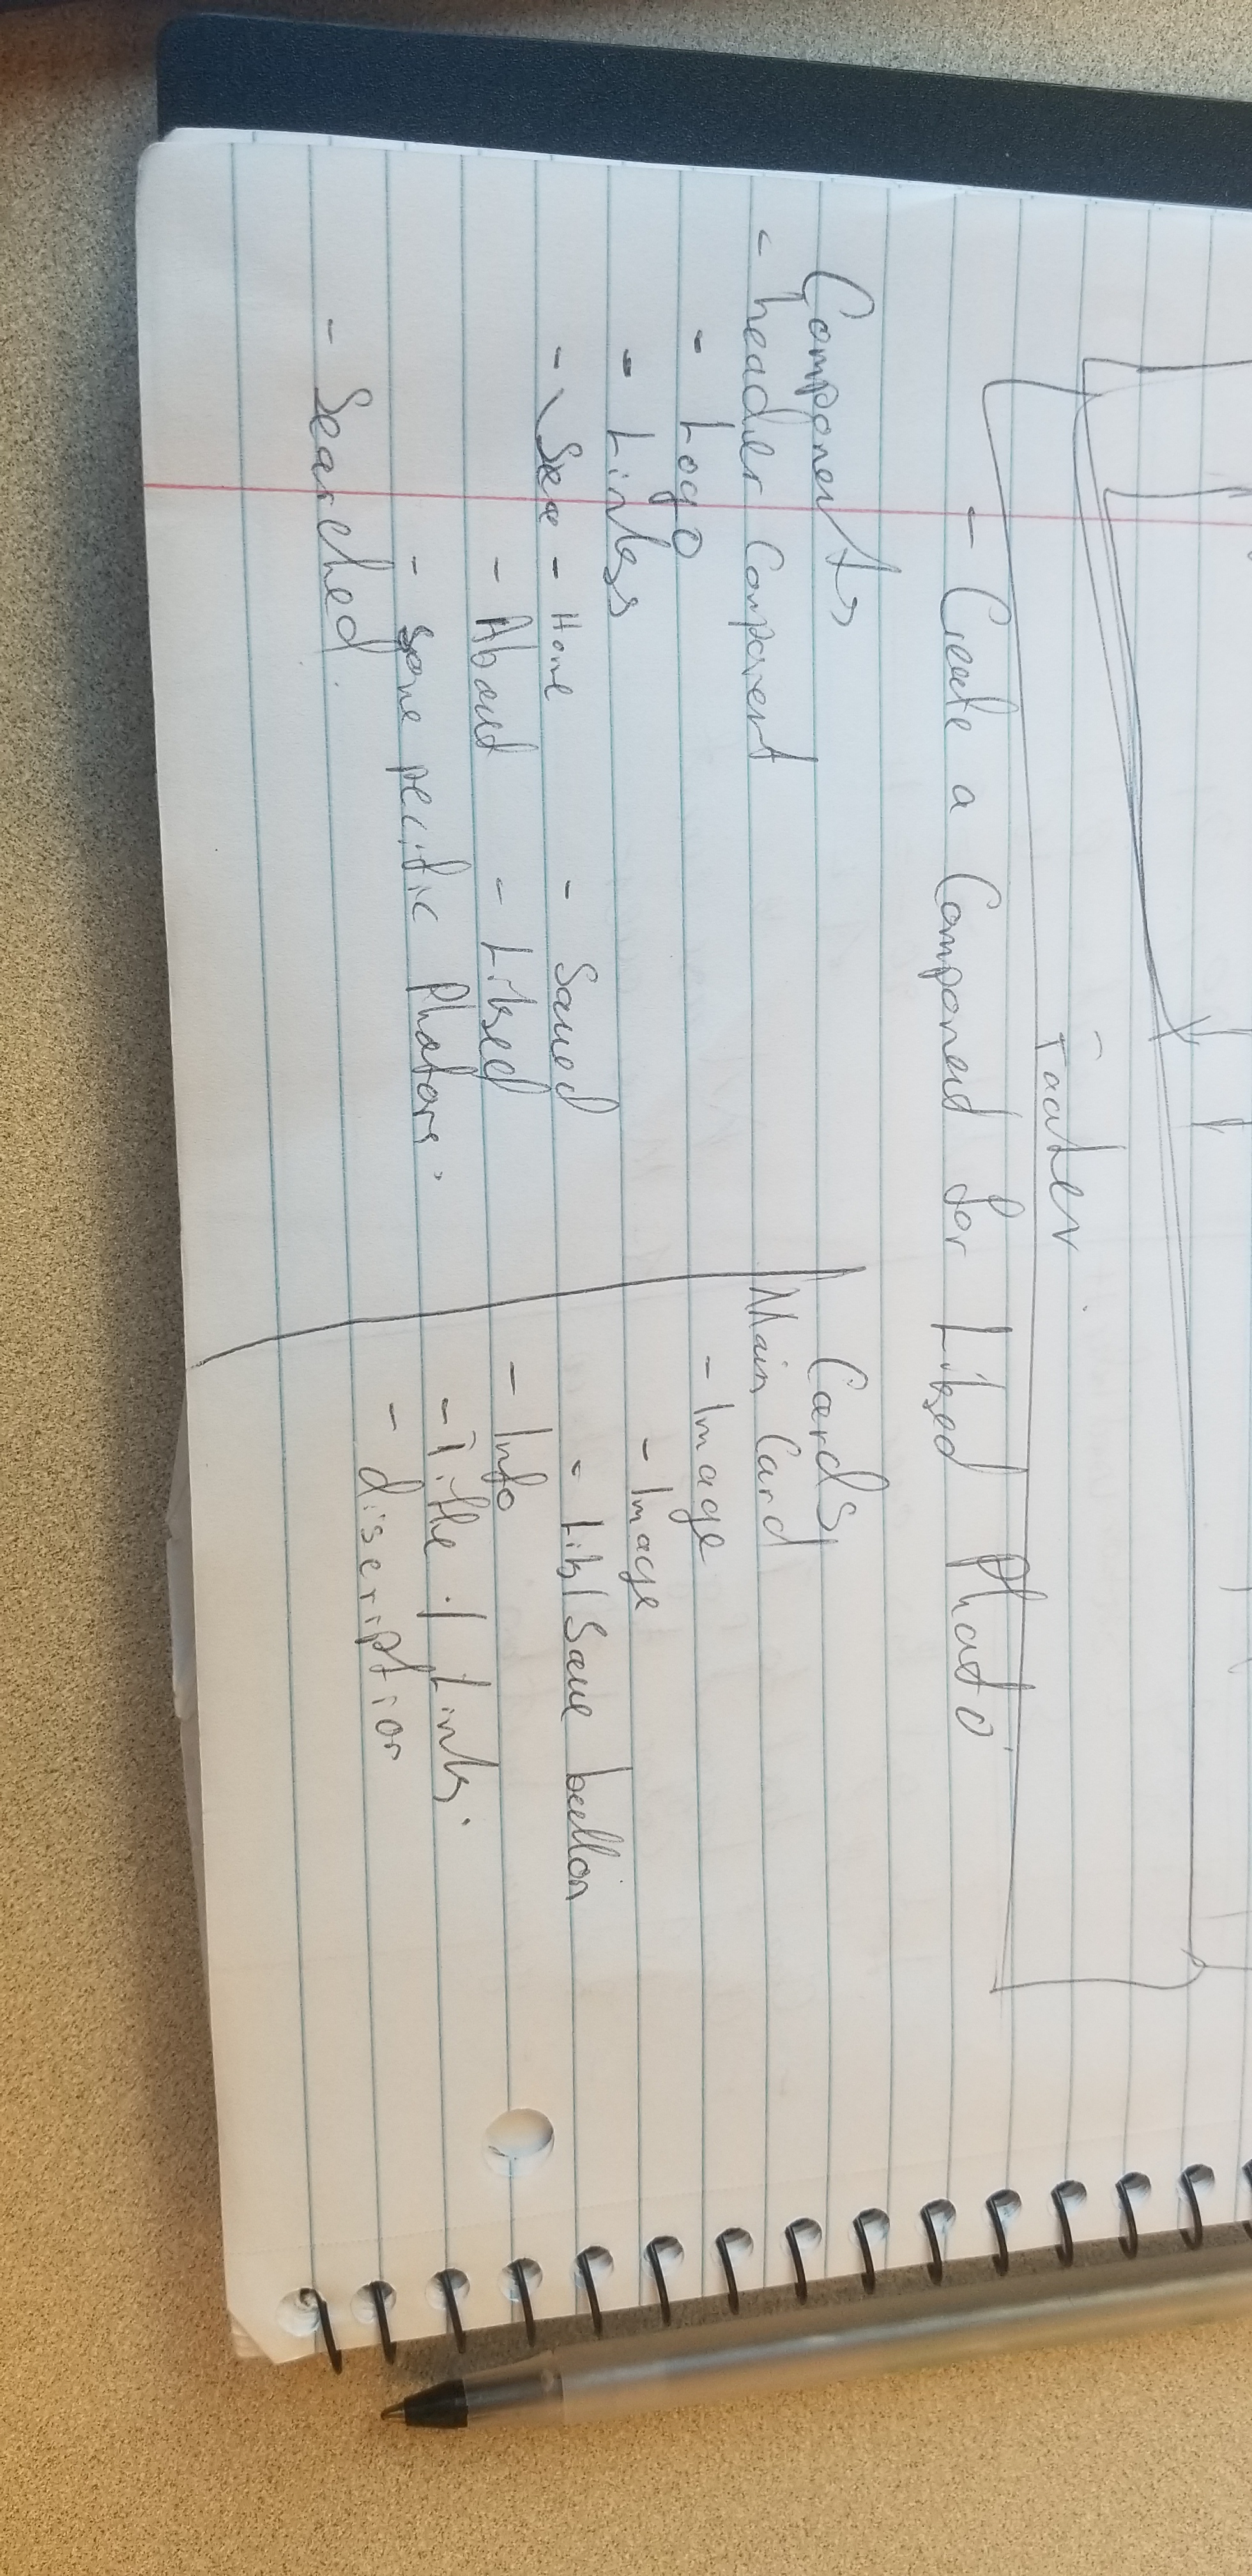 Footer
- Create a Component for Liked Photo
Components
- header Component
- Logo
- Links
- Sea - Home - Saved
- About - Liked
- some pecific Photos.
- Searched.
Cards
Main Card
- Image
- Image
- Like/Save button
- Info
- Title / Links.
- discription